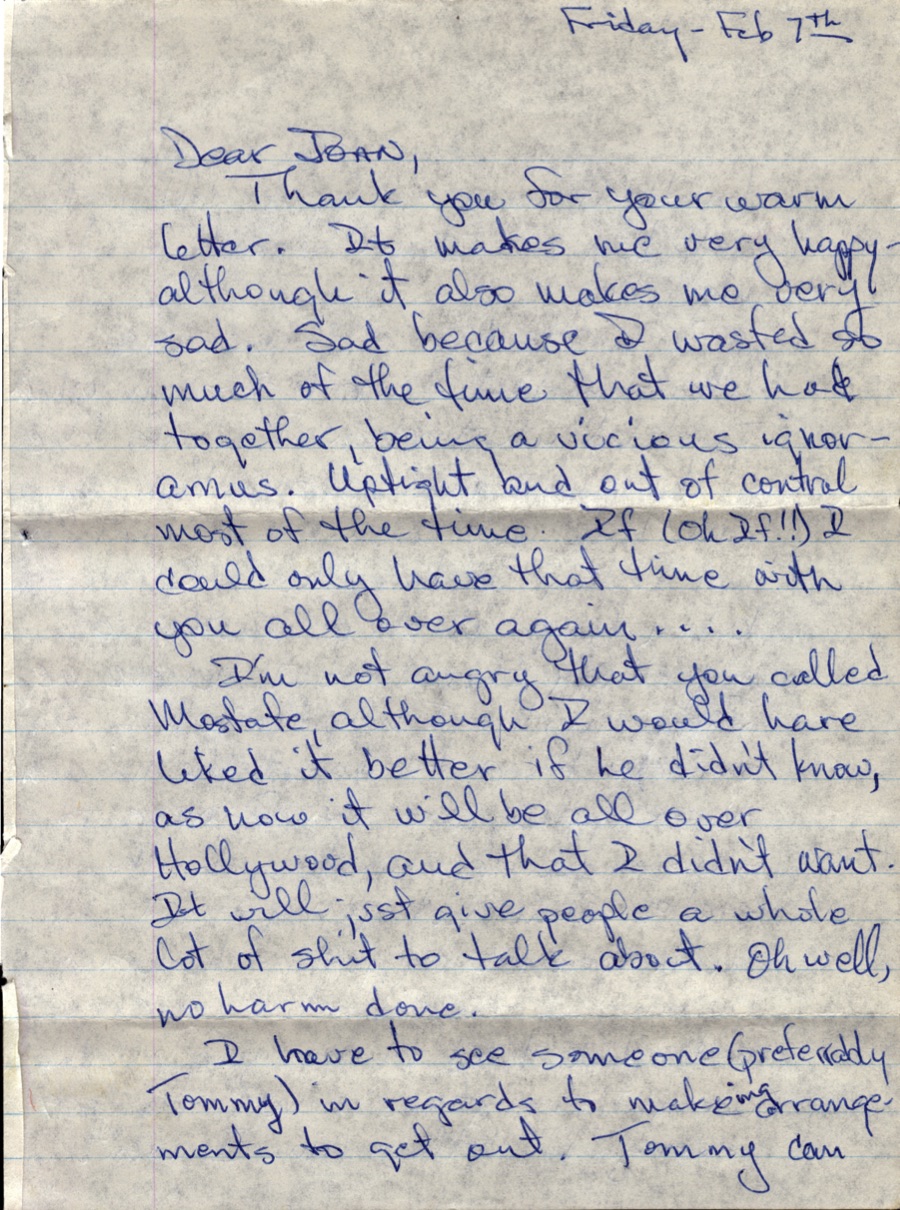 Friday - Feb 7th
Dear JOAN,
Thank you for your warm
letter. It makes me very happy -
although it also makes me very
sad. Sad because I wasted so
much of the time that we had
together, being a vicious ignor-
amus. Uptight and out of control
most of the time. If (Oh If!!) I
could only have that time with
you all over again....
I'm not angry that you called
Mostafe, although I would have
liked it better if he didn't know,
as now it will be all over
Hollywood, and that I didn't want.
It will just give people a whole
lot of shit to talk about. Oh well,
no harm done.
I have to see someone (preferrably
Tommy) in regards to making arrange-
ments to get out. Tommy can